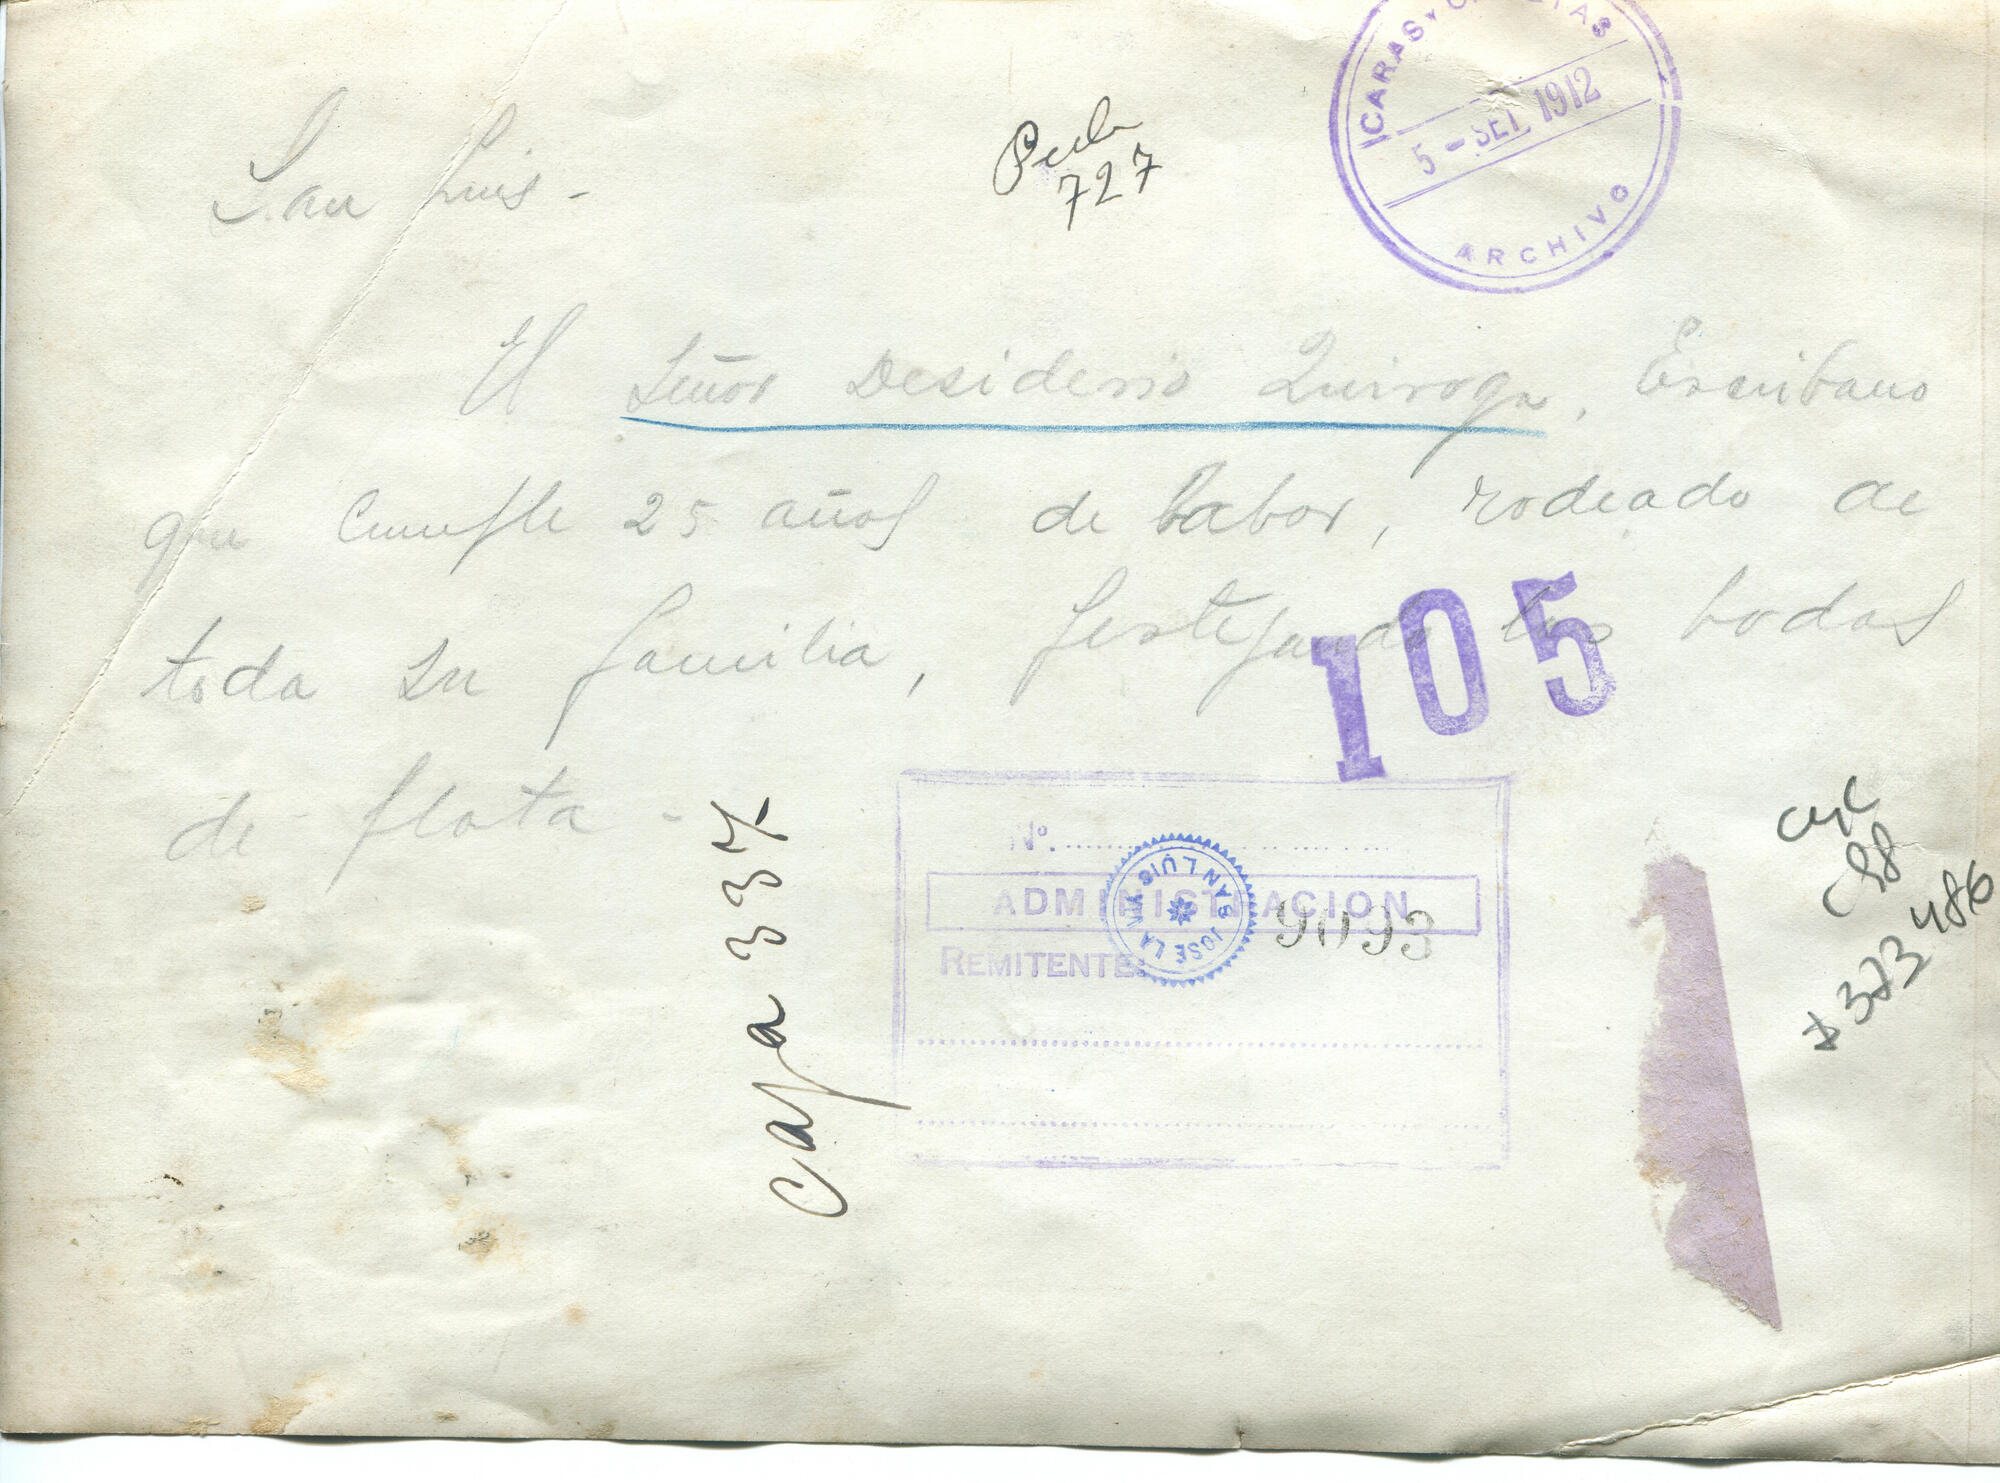 CARAS Y CARETAS
5 - SET. 1912
ARCHIVO
Pub
727
San Luis -
El Señor Desiderio Quiroga, Escribano
que cumple 25 años de labor, rodeado de
toda su familia, festejando las bodas
de plata -
105
Nº.
ADMINISTRACION
9093
REMITENTE:
JOSÉ LA VIA
SAN LUIS
Caja 337.
cyc
486
* 373